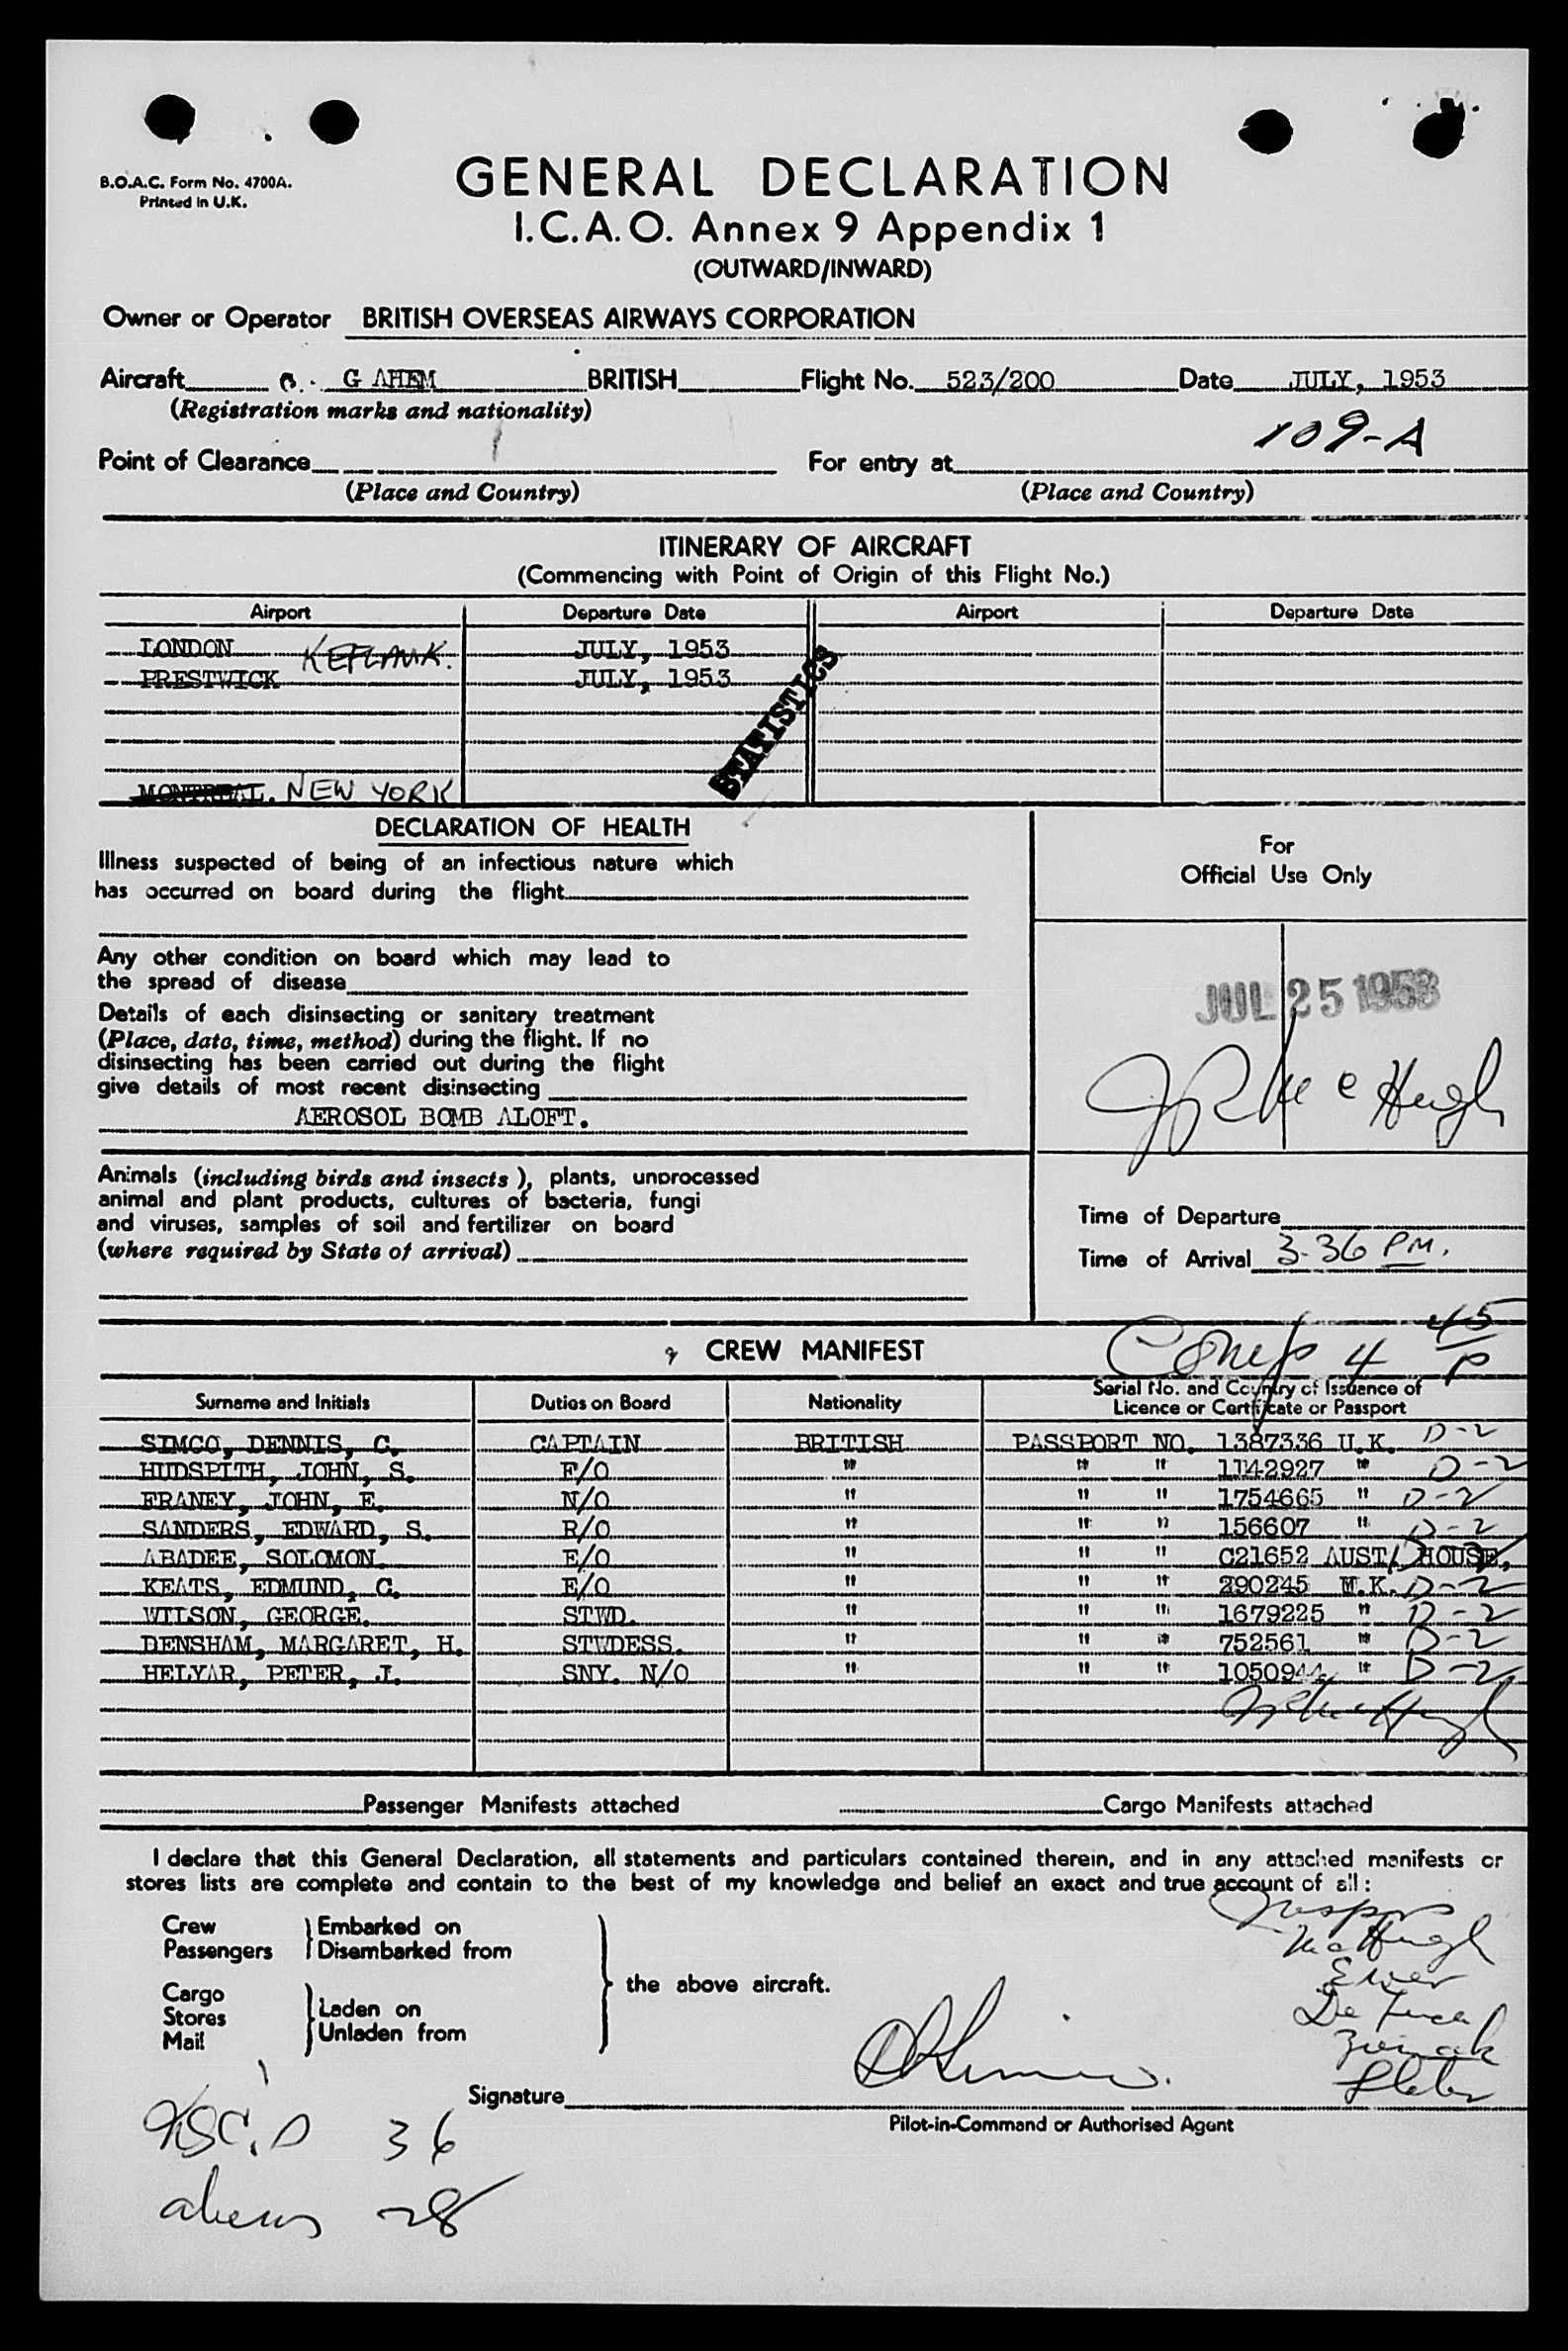 B.O.A.C. Form No. 4700A.
Printed in U.K.
GENERAL DECLARATION
I.C.A.O. Annex 9 Appendix 1
(OUTWARD/INWARD)
Owner or Operator BRITISH OVERSEAS AIRWAYS CORPORATION
Aircraft G AHEM BRITISH Flight No. 523/200 Date JULY, 1953
(Registration marks and nationality)
109-A
Point of Clearance For entry at
(Place and Country) (Place and Country)
ITINERARY OF AIRCRAFT
(Commencing with Point of Origin of this Flight No.)
Airport Departure Date Airport Departure Date
LONDON KEFLAVIK. JULY, 1953
PRESTWICK JULY, 1953
STATISTICS
MONTREAL. NEW YORK
DECLARATION OF HEALTH
Illness suspected of being of an infectious nature which
has occurred on board during the flight
Any other condition on board which may lead to
the spread of disease
Details of each disinsecting or sanitary treatment
(Place, date, time, method) during the flight. If no
disinsecting has been carried out during the flight
give details of most recent disinsecting
AEROSOL BOMB ALOFT.
Animals (including birds and insects), plants, unprocessed
animal and plant products, cultures of bacteria, fungi
and viruses, samples of soil and fertilizer on board
(where required by State of arrival)
For
Official Use Only
JUL 25 1953
McHugh
Time of Departure
Time of Arrival 3-36 PM.
4 45/P
CREW MANIFEST
Surname and Initials Duties on Board Nationality Serial No. and Country of Issuance of
Licence or Certificate or Passport
SIMCO, DENNIS, C. CAPTAIN BRITISH PASSPORT NO. 1387336 U.K. D-2
HUDSPITH, JOHN, S. F/O " " " 1142927 " D-2
FRANEY, JOHN, E. N/O " " " 1754665 " D-2
SANDERS, EDWARD, S. R/O " " " 156607 " D-2
ABADEE, SOLOMON. E/O " " " C21652 AUST/ HOUSE,
KEATS, EDMUND, C. E/O " " " 290245 U.K. D-2
WILSON, GEORGE. STWD. " " " 1679225 " D-2
DENSHAM, MARGARET, H. STWDESS. " " " 752561 " D-2
HELYAR, PETER, J. SNY. N/O " " " 1050944 " D-2
McHugh
Passenger Manifests attached Cargo Manifests attached
I declare that this General Declaration, all statements and particulars contained therein, and in any attached manifests or
stores lists are complete and contain to the best of my knowledge and belief an exact and true account of all:
Crew Embarked on
Passengers Disembarked from
Cargo
Stores
Mail
Laden on
Unladen from
the above aircraft.
Insprs
McHugh
De Luca
Signature
Pilot-in-Command or Authorised Agent
36
aliens 28